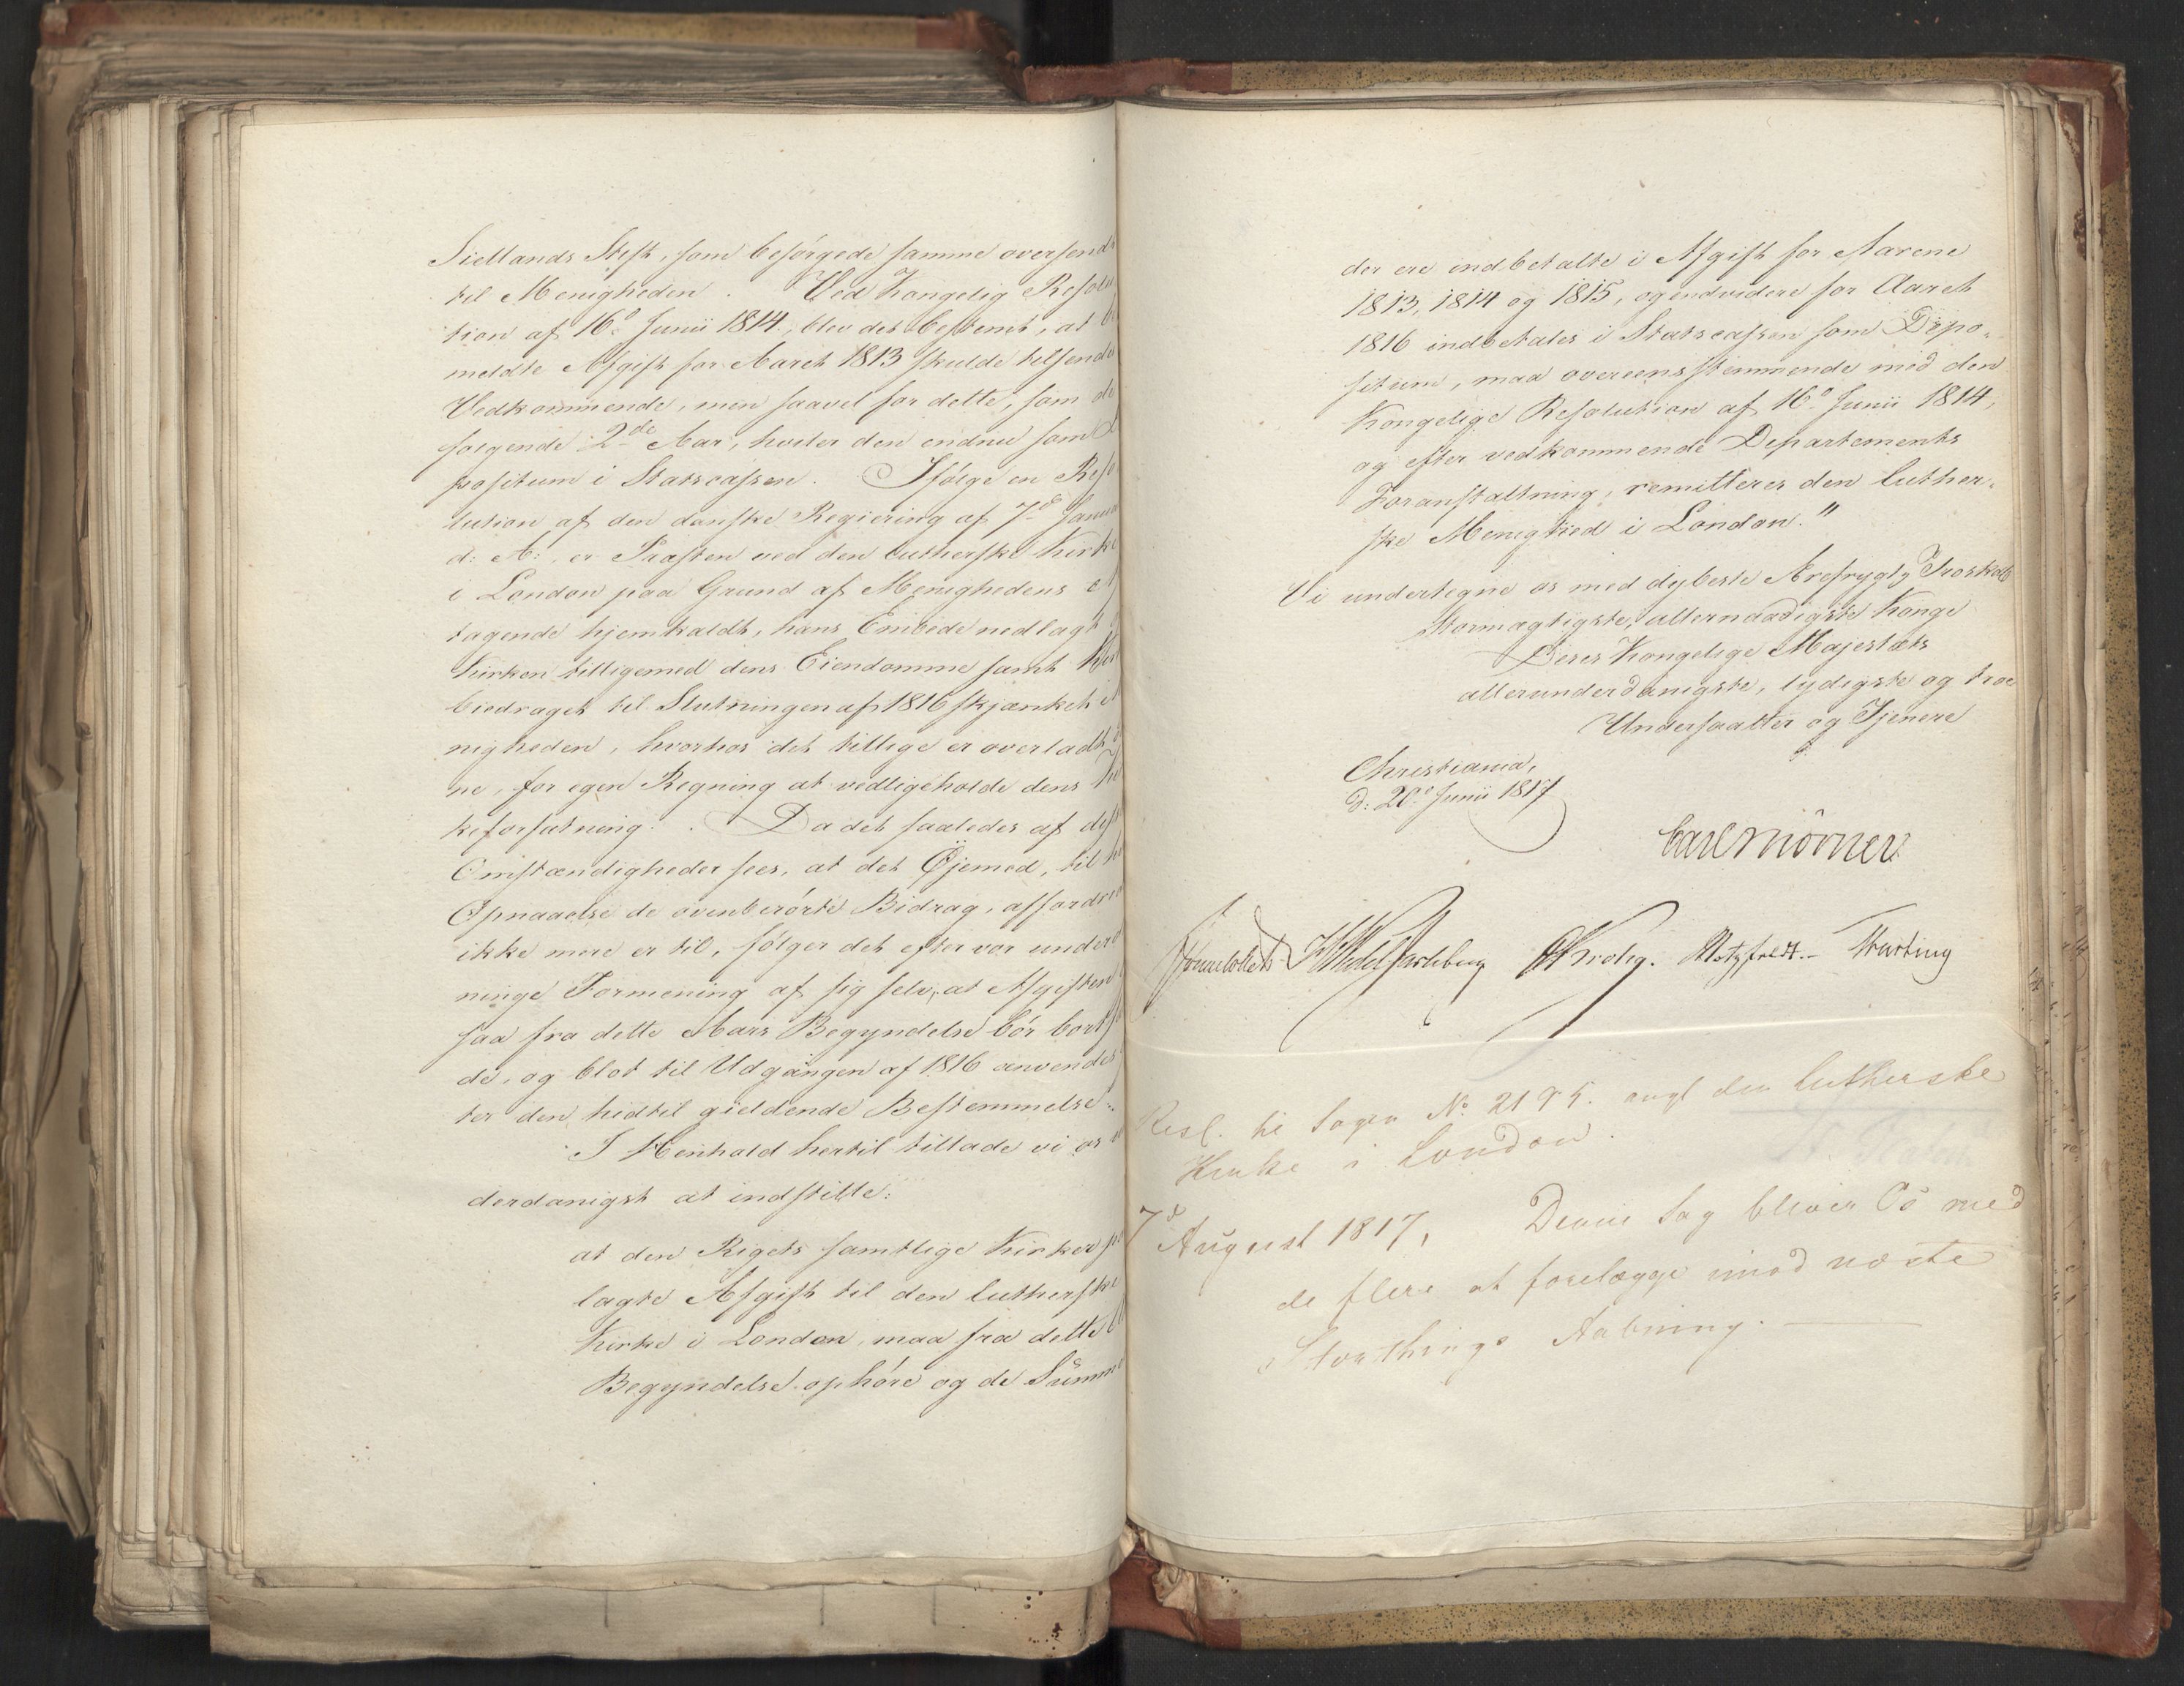 Siellands Stift, som besørgede samme oversendt
til Menigheden. Ved Kongelig Resolu
tion af 16de Junii 1814, blev det bestemt, at be
meldte Afgift for Aaret 1813 skulde tilsende
Vedkommende, men saavel for dette, som de
følgende 2de Aar, hviler den endnu som De
positum i Statscassen. Ifølge en Reso
lution af den danske Regiering af 7de Janua
d: A:, er Præsten ved den lutherske Kirke
i London paa Grund af Menighedens Af
tagende hjemkaldt, hans Embede nedlagt
Kirken tilligemed dens Eiendomme samt
bidraget til Slutningen af 1816 skjænket
nigheden, hvorhos det tillige er overladt
ne, for egen Regning at vedligeholde dens
keforfatning. Da det saaledes af disse
Omstændigheder sees, at det Øjemed, til
Opnaaelse de ovenberørte Bidrag, affordres
ikke mere er til, følger det efter vor under
ninge Formening af sig selv, at Afgiften
saa fra dette Aars Begyndelse bør bortfal
de, og blot til Udgangen af 1816 anvendes
ter den hidtil gieldende Bestemmelse.
I Henhold hertil tillade vi os
derdanigst at indstille:
at den Rigets samtlige Kirker paa
lagte Afgift til den lutherske
Kirke i London, maa fra dette
Begyndelse ophøre og de Summe
der ere indbetalte i Afgift for Aarene
1813, 1814 og 1815, og endvidere for Aaret
1816 indbetales i Statscassen som Depo-
situm, maa overeensstemmende med den
Kongelige Resolution af 16de Junii 1814,
og efter vedkommende Departements
Foranstaltning, remitteres den luther-
ske Menighed i London."
Vi undertegne os med dybeste Ærefrygt og Troskab
Stormægtigste, allernaadigste Konge
Deres Kongelige Majestæts
allerunderdanigste, lydigste og troe
Undersaatter og Tjenere
Christiania,
d: 20de Junii 1817
Carl Mörner
Sommerhielm HWedel Jarlsberg Krohg. Motzfeldt. Thurling
Resl. til Sagen No 2195. angl den lutherske
Kirke i London.
7de August 1817, Denne Sag bliver Os med
de flere at forelægge imod næste
Storthings Aabning.